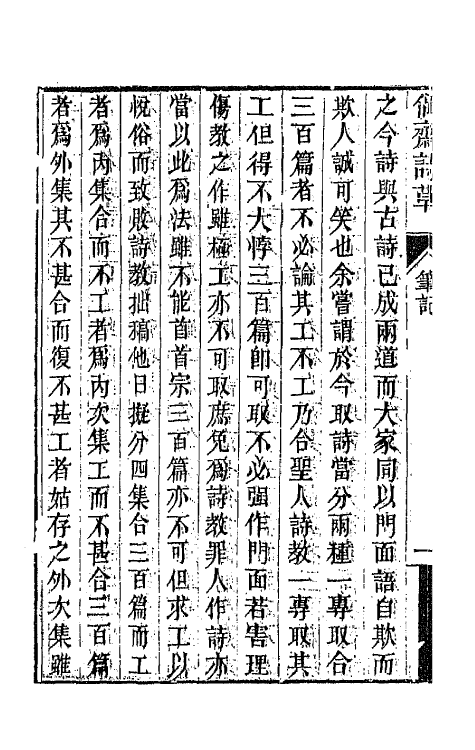 齋詩草
筆記
一
之今詩與古詩已成兩道而大家同以門面語自欺而
欺人誠可笑也余嘗謂於今取詩當分兩種一專取合
三百篇者不必論其工不工乃合聖人詩教一專取其
工但得不大悖三百篇即可取不必强作門面若害理
傷教之作雖極工亦不可取庶免爲詩教罪人作詩亦
當以此爲法雖不能首首宗三百篇亦不可但求工以
悅俗而致敗詩教拙稿他日擬分四集合三百篇而工
者爲內集合而不工者爲內次集工而不甚合三百篇
者爲外集其不甚合而復不甚工者姑存之外次集雖